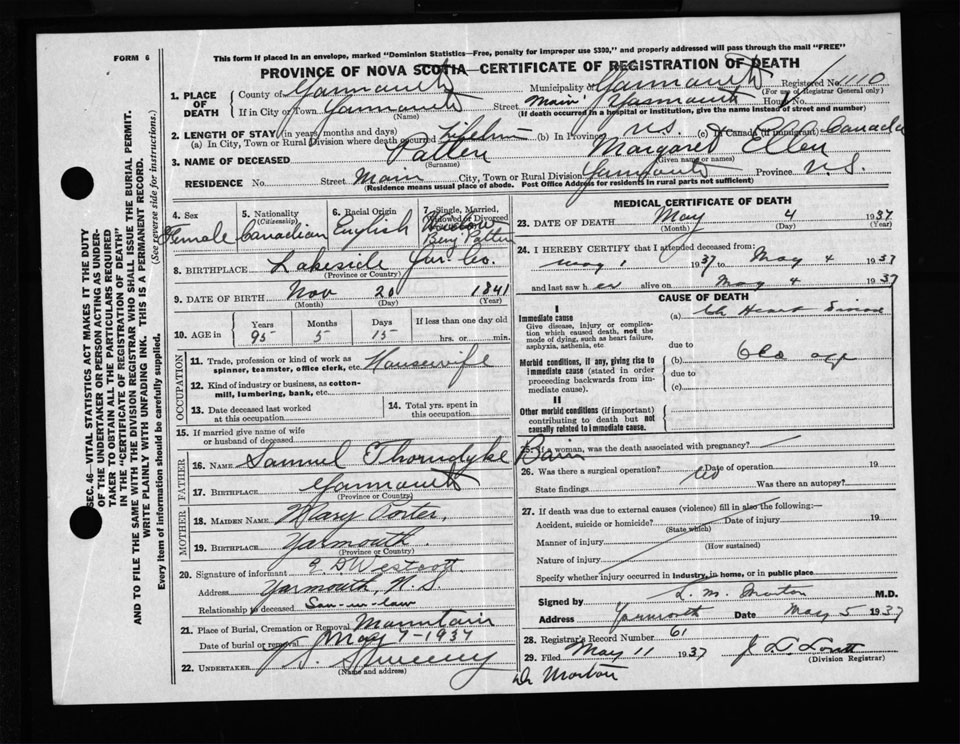 FORM 6
This form if placed in an envelope, marked "Dominion Statistics—Free, penalty for improper use $300," and properly addressed will pass through the mail "FREE"
PROVINCE OF NOVA SCOTIA—CERTIFICATE OF REGISTRATION OF DEATH
1. PLACE OF DEATH
County of Yarmouth Municipality of Yarmouth Registered No. 1110
(For use of Registrar General only)
If in City or Town Yarmouth Street Main Yarmouth House No.
(Name) (If death occurred in a hospital or institution, give the name instead of street and number)
2. LENGTH OF STAY (in years months and days)
(a) In City, Town or Rural Division where death occurred Lifetime (b) In Province N.S. (c) In Canada (if immigrant) Canada
3. NAME OF DECEASED Patten Margaret Ellen
(Surname) (Given name or names)
RESIDENCE No. Street Main City, Town or Rural Division Yarmouth Province N.S.
(Residence means usual place of abode. Post Office Address for residents in rural parts not sufficient)
4. Sex Female
5. Nationality (Citizenship) Canadian
6. Racial Origin English
7. Single, Married, Widowed or Divorced Widow Benj Patten
8. BIRTHPLACE Lakeside Yar. Co.
(Province or Country)
9. DATE OF BIRTH Nov 20 1841
(Month) (Day) (Year)
10. AGE in Years 95 Months 5 Days 15 If less than one day old hrs. or min.
OCCUPATION
11. Trade, profession or kind of work as spinner, teamster, office clerk, etc. Housewife
12. Kind of industry or business, as cotton-mill, lumbering, bank, etc.
13. Date deceased last worked at this occupation
14. Total yrs. spent in this occupation
15. If married give name of wife or husband of deceased
FATHER
16. NAME Samuel Thorndyke Bain
17. BIRTHPLACE Yarmouth
(Province or Country)
MOTHER
18. MAIDEN NAME Mary Porter,
19. BIRTHPLACE Yarmouth.
(Province or Country)
20. Signature of informant D Westcott
Address Yarmouth, N.S
Relationship to deceased Son-in-law
21. Place of Burial, Cremation or Removal Mountain
Date of burial or removal May 7-1937
22. UNDERTAKER Sweeney
(Name and address)
MEDICAL CERTIFICATE OF DEATH
23. DATE OF DEATH May 4 1937
(Month) (Day) (Year)
24. I HEREBY CERTIFY that I attended deceased from:
May 1 1937 to May 4 1937
and last saw her alive on May 4 1937
CAUSE OF DEATH
I
Immediate cause
Give disease, injury or complication which caused death, not the mode of dying, such as heart failure, asphyxia, asthenia, etc
(a) Ch Heart Disease
due to
Morbid conditions, if any, giving rise to immediate cause (stated in order proceeding backwards from immediate cause).
(b) Old age
due to
(c)
II
Other morbid conditions (if important) contributing to death but not causally related to immediate cause.
25. If a woman, was the death associated with pregnancy?
26. Was there a surgical operation? No Date of operation 19
State findings Was there an autopsy?
27. If death was due to external causes (violence) fill in also the following:—
Accident, suicide or homicide? Date of injury 19
(State which)
Manner of injury
(How sustained)
Nature of injury
Specify whether injury occurred in industry, in home, or in public place
Signed by L. M. Morton M.D.
Address Yarmouth Date May 5 1937
28. Registrar's Record Number 61
29. Filed May 11 1937
(Division Registrar)
Dr Morton
SEC. 46—VITAL STATISTICS ACT MAKES IT THE DUTY OF THE UNDERTAKER OR PERSON ACTING AS UNDERTAKER TO OBTAIN ALL THE PARTICULARS REQUIRED IN THE "CERTIFICATE OF REGISTRATION OF DEATH" AND TO FILE THE SAME WITH THE DIVISION REGISTRAR WHO SHALL ISSUE THE BURIAL PERMIT.
WRITE PLAINLY WITH UNFADING INK. THIS IS A PERMANENT RECORD.
Every item of information should be carefully supplied. (See reverse side for instructions.)